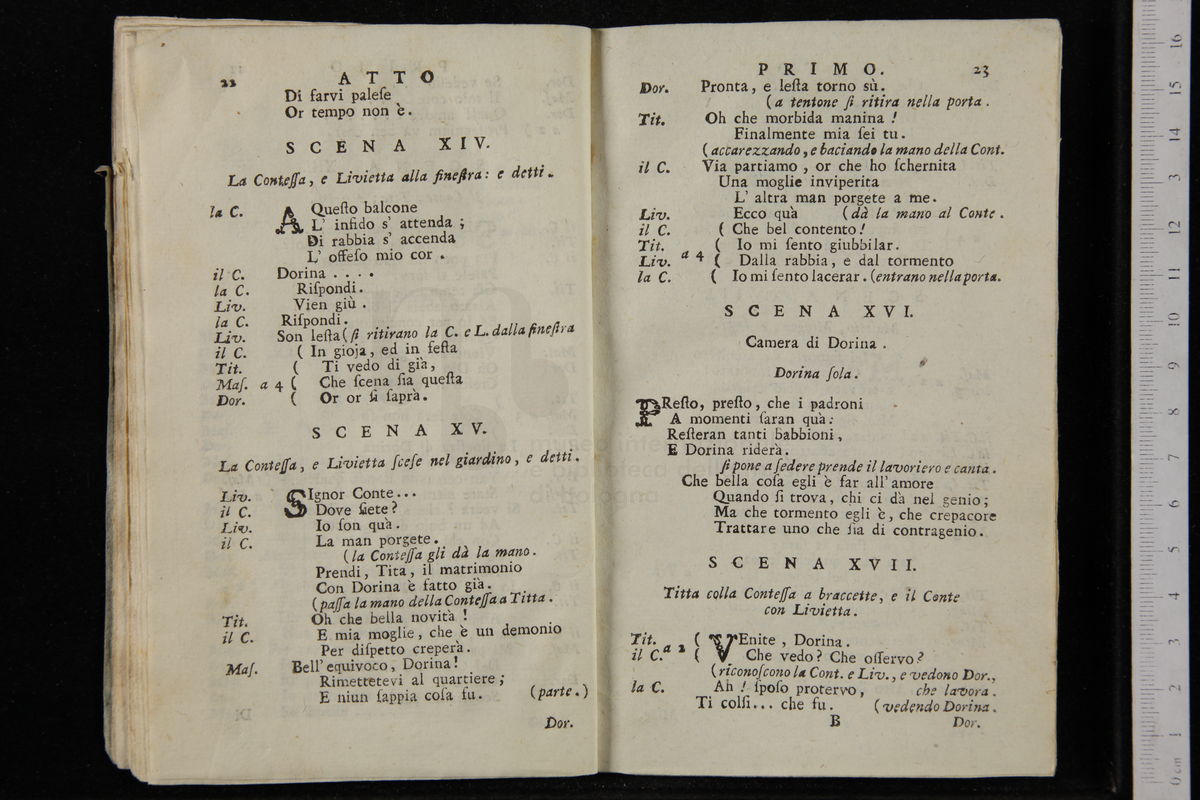 22 ATTO
Di farvi paleſe
Or tempo non è.
SCENA XIV.
La Conteſſa, e Livietta alla fineſtra: e detti.
la C. A Queſto balcone
L' infido s' attenda ;
Di rabbia s' accenda
L' offeſo mio cor .
il C. Dorina . . . .
la C. Riſpondi.
Liv. Vien giù .
la C. Riſpondi.
Liv. Son leſta (ſi ritirano la C. e L. dalla fineſtra
il C. ( In gioja, ed in feſta
Tit. ( Ti vedo di già,
Maſ. a 4 ( Che ſcena ſia queſta
Dor. ( Or or ſi ſaprà.
SCENA XV.
La Conteſſa, e Livietta ſceſe nel giardino, e detti.
Liv. SIgnor Conte...
il C. Dove ſiete?
Liv. Io ſon quà.
il C. La man porgete.
(la Conteſſa gli dà la mano.
Prendi, Tita, il matrimonio
Con Dorina è fatto già.
(paſſa la mano della Conteſſa a Titta.
Tit. Oh che bella novità !
il C. E mia moglie, che è un demonio
Per diſpetto creperà.
Maſ. Bell' equivoco, Dorina!
Rimettetevi al quartiere ;
E niun ſappia coſa fu. (parte.)
Dor.
PRIMO. 23
Dor. Pronta, e leſta torno sù.
(a tentone ſi ritira nella porta.
Tit. Oh che morbida manina !
Finalmente mia ſei tu.
(accarezzando, e baciando la mano della Cont.
il C. Via partiamo, or che ho ſchernita
Una moglie inviperita
L' altra man porgete a me.
Liv. Ecco quà (dà la mano al Conte.
il C. ( Che bel contento!
Tit. ( Io mi ſento giubbilar.
Liv. a 4 ( Dalla rabbia, e dal tormento
la C. ( Io mi ſento lacerar. (entrano nella porta.
SCENA XVI.
Camera di Dorina .
Dorina ſola.
PReſto, preſto, che i padroni
A momenti ſaran quà:
Reſteran tanti babbioni,
E Dorina riderà.
ſi pone a ſedere prende il lavoriero e canta.
Che bella coſa egli è far all' amore
Quando ſi trova, chi ci dà nel genio;
Ma che tormento egli è, che crepacore
Trattare uno che ſia di contragenio.
SCENA XVII.
Titta colla Conteſſa a braccette, e il Conte
con Livietta.
Tit. ( VEnite , Dorina.
il C. a 2 ( Che vedo? Che oſſervo?
(riconoſcono la Cont. e Liv., e vedono Dor.,
la C. Ah ! ſpoſo protervo, che lavora.
Ti colſi... che fu. (vedendo Dorina.
B Dor.